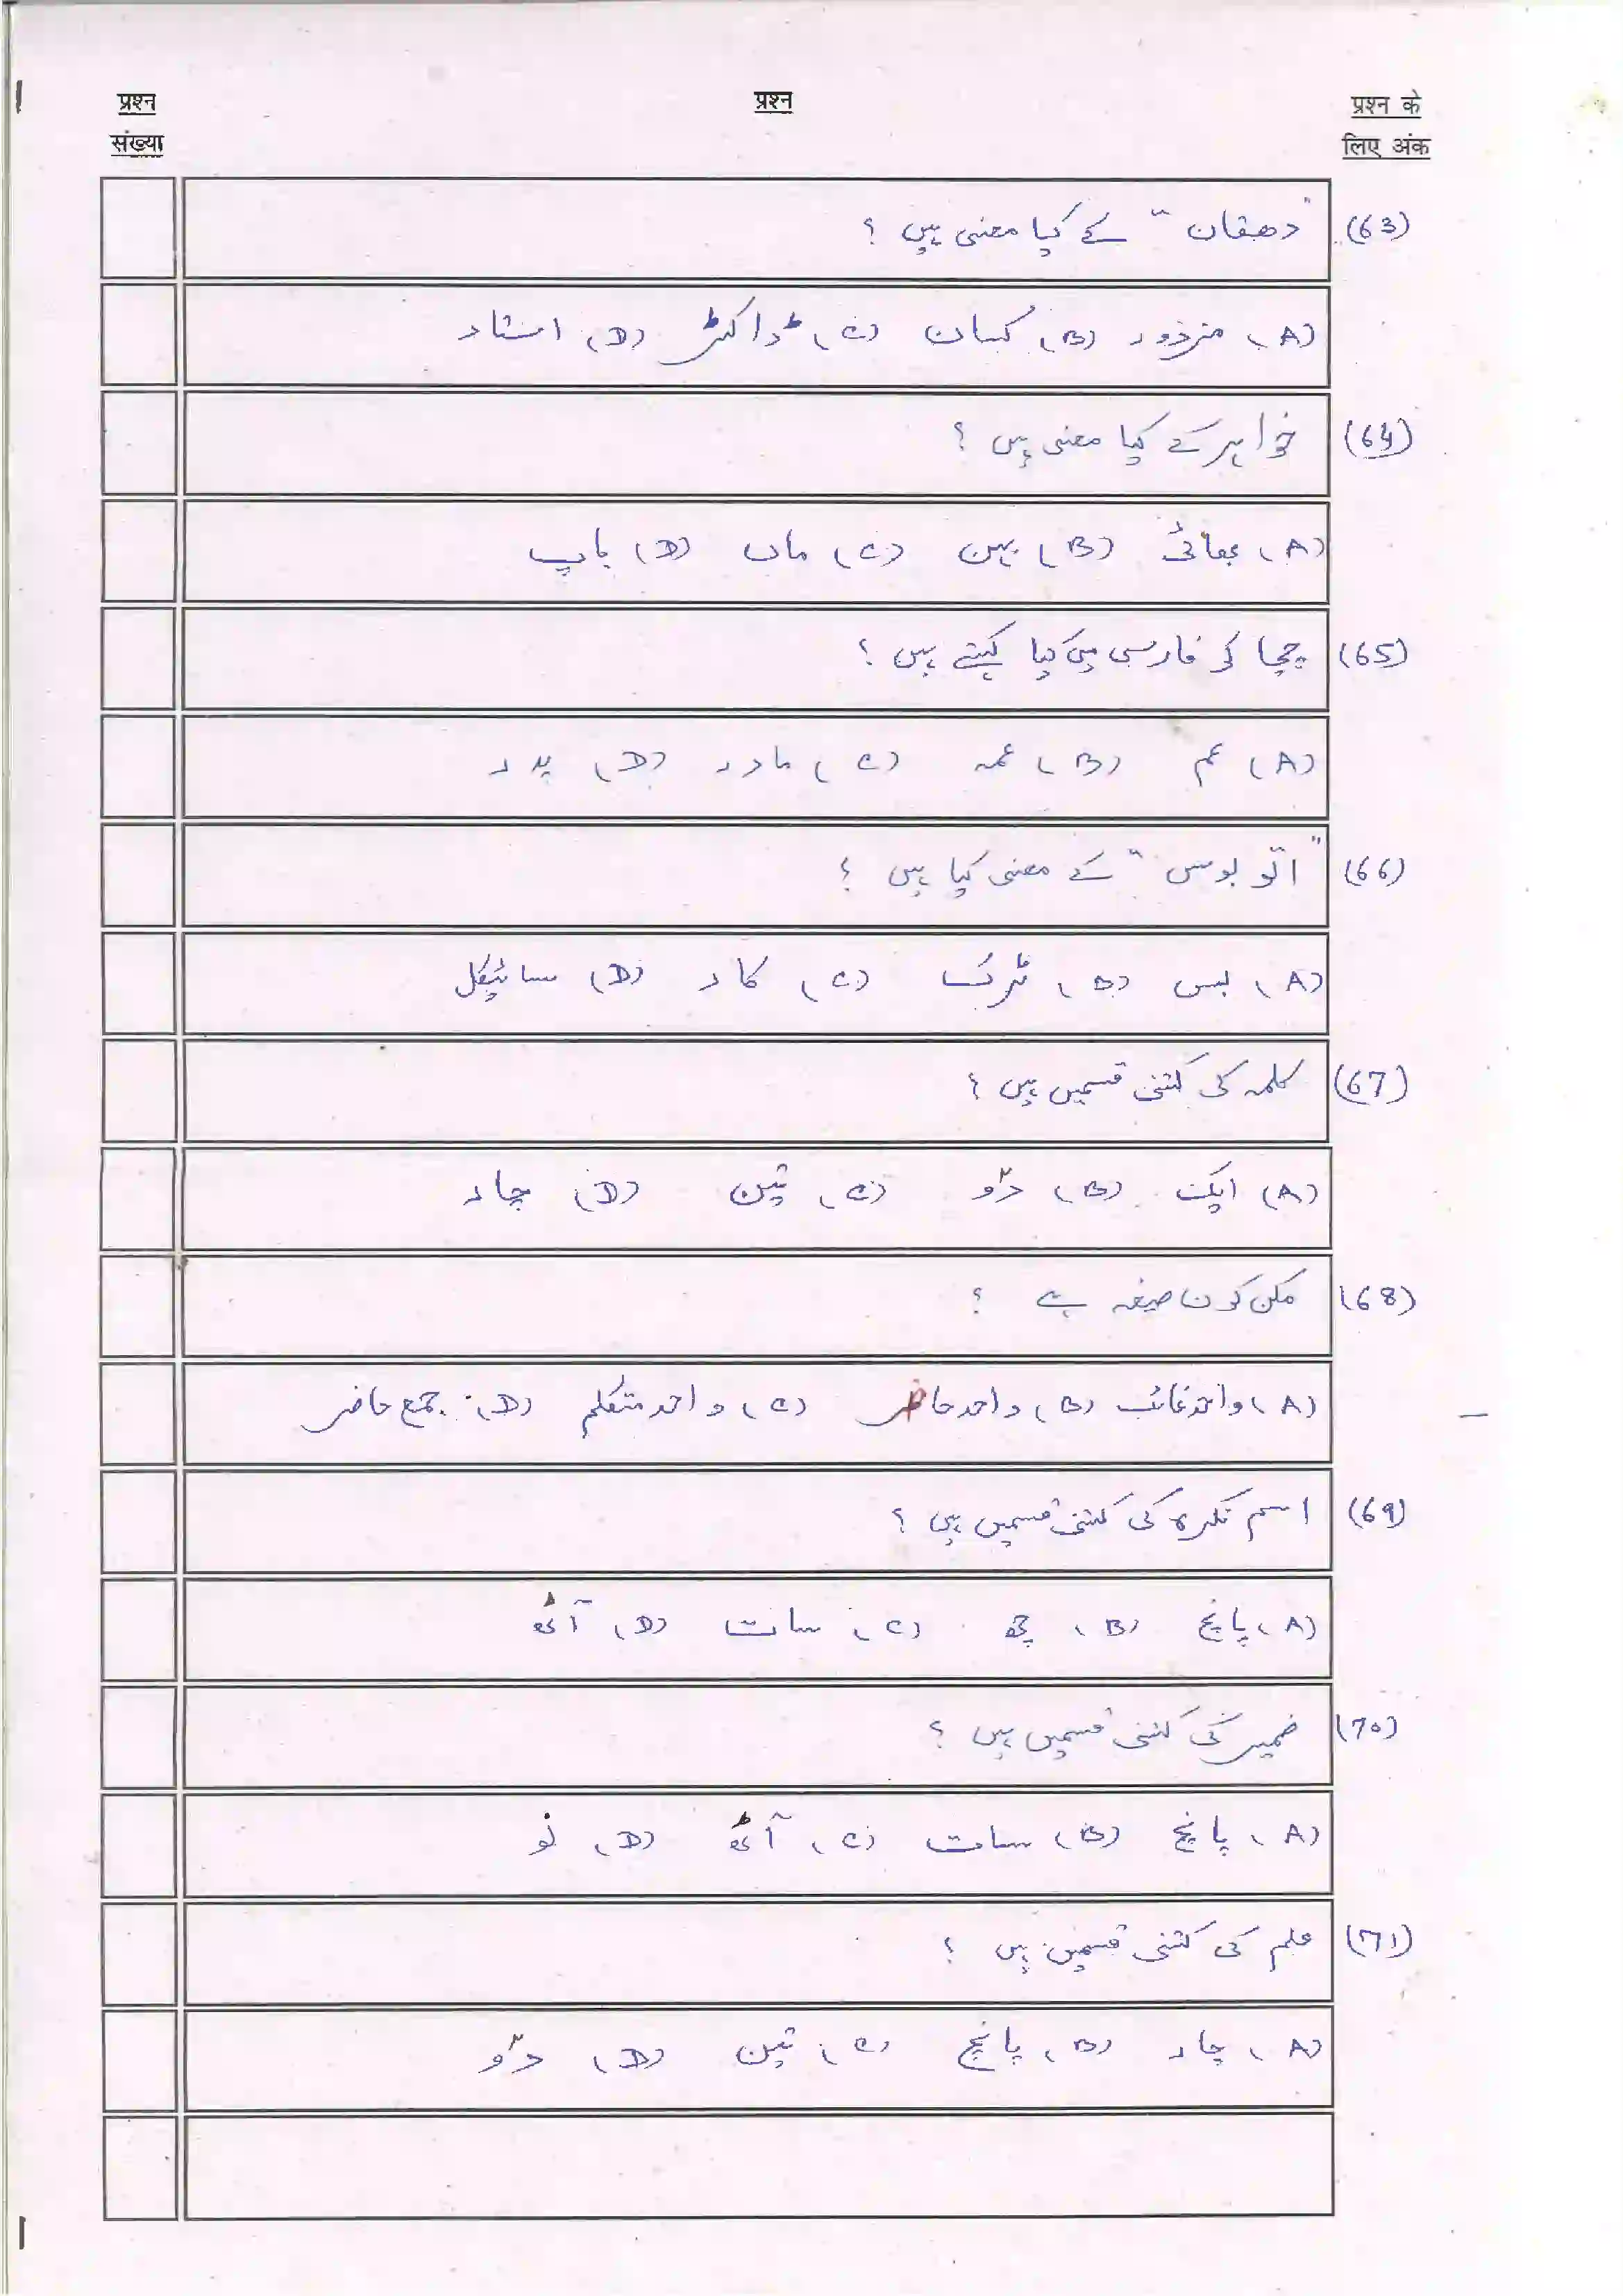 प्रश्न संख्या
प्रश्न
प्रश्न के लिए अंक
(63) "دھقان" کے کیا معنی ہیں ؟
(A) مزدور (B) کسان (C) ڈاکٹر (D) استاد
(64) خواہر کے کیا معنی ہیں ؟
(A) بھائی (B) بہن (C) ماں (D) باپ
(65) چچا کو فارسی میں کیا کہتے ہیں ؟
(A) عم (B) عمہ (C) مادر (D) پدر
(66) "اتو بوس" کے معنی کیا ہیں ؟
(A) بس (B) ٹرک (C) کار (D) سائیکل
(67) کلمہ کی کتنی قسمیں ہیں ؟
(A) ایک (B) دو (C) تین (D) چار
(68) مکن کون صیغہ ہے ؟
(A) واحد غائب (B) واحد حاضر (C) واحد متکلم (D) جمع حاضر
(69) اسم نکرہ کی کتنی قسمیں ہیں ؟
(A) پانچ (B) چھ (C) سات (D) آٹھ
(70) ضمیر کی کتنی قسمیں ہیں ؟
(A) پانچ (B) سات (C) آٹھ (D) نو
(71) علم کی کتنی قسمیں ہیں ؟
(A) چار (B) پانچ (C) تین (D) دو